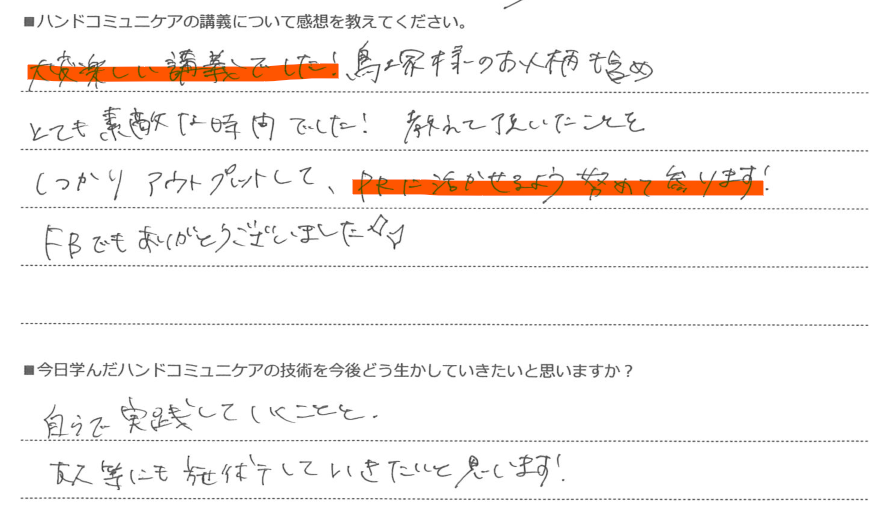 ■ハンドコミュニケアの講義について感想を教えてください。
大変楽しい講義でした!鳥塚様のお人柄も含め
とても素敵な時間でした! 教えて頂いたことを
しっかりアウトプットして、PRに活かせるよう努めて参ります!
FBでもありがとうございました
■今日学んだハンドコミュニケアの技術を今後どう生かしていきたいと思いますか?
自分で実践していくことと、
友人等にも施術していきたいと思います!